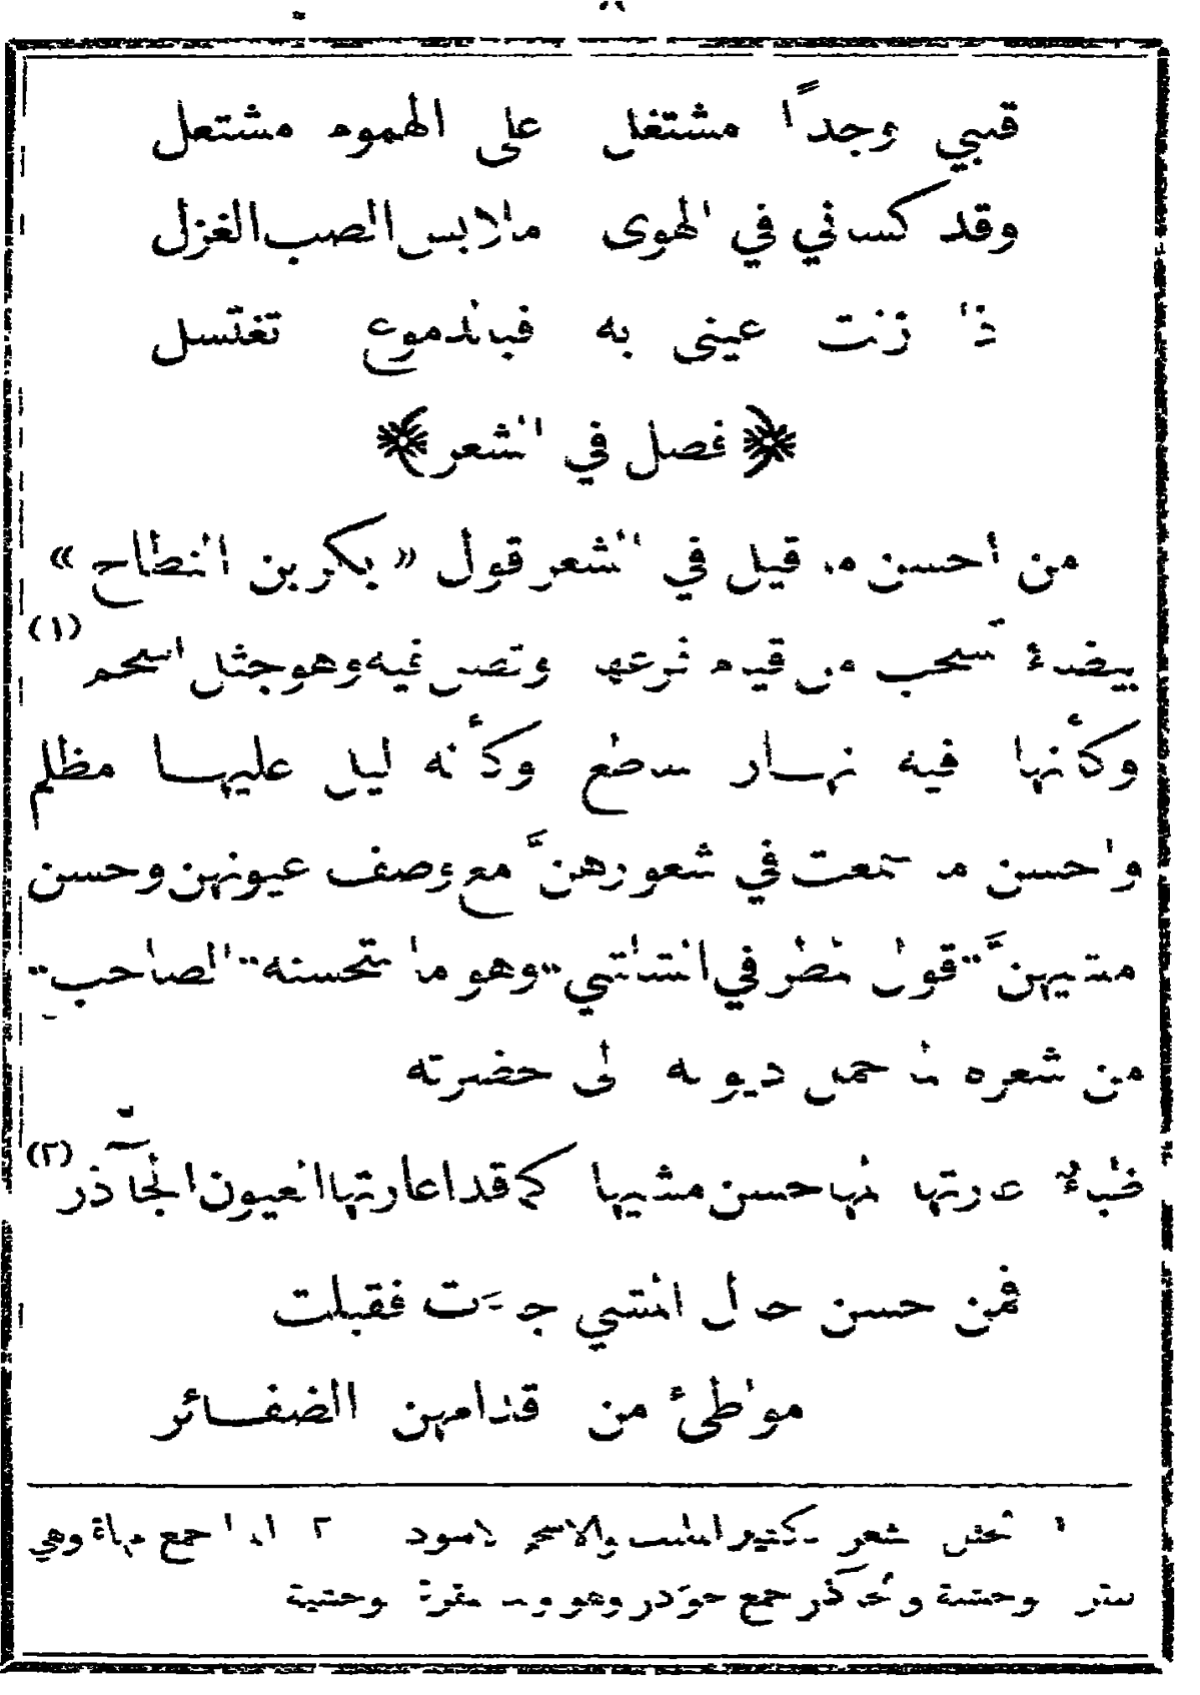 قلبي وجداً مشتغل على الهموم مشتعل
وقد كساني في الهوى ملابس الصب الغزل
اذا زنت عيني به فبالدموع تغتسل
﴿ فصل في الشعر ﴾
من احسن ما قيل في الشعر قول « بكر بن النطاح »
بيضاء تسحب من قيام فرعها وتضل فيه وهو جثل اسحم (١)
وكأنها فيه نهار ساطع وكأنه ليل عليها مظلم
واحسن ما سمعت في شعورهن مع وصف عيونهن وحسن
مشيهن قول المطراني الشاشي وهو مما استحسنه الصاحب
من شعره لما حمل ديوانه الى حضرته
ظباء اعارتها المها حسن مشيها كما قد اعارتها العيون الجآذر (٢)
فمن حسن حال المشي جاءت فقبلت
مواطئ من اقدامهن الضفائر
١ الجثل الشعر الكثير الملتف والاسحم الاسود ٢ المها جمع مهاة وهي
بقر وحشية والجآذر جمع جؤذر وهو ولد بقرة وحشية